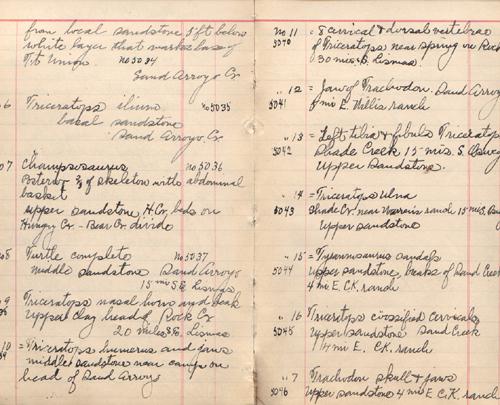 from local sandstone 5 ft below
white layer that marks base of
Ft Union. no 5034
Sand Arroyo Cr
6 Triceratops ilium no 5035
basal sandstone
Sand Arroyo Cr
07 Champsosaurus no 5036
Posterior ⅔ of skeleton with abdominal
basket
upper sandstone H.Cr. beds on
Hungry Cr - Bear Cr divide
8 Turtle complete no 5037
middle sandstone Sand Arroyo
15 mi S.E. Lismas
9 Triceratops nasal horn and beak
Upper clay head of Rock Cr
20 miles S.E. Lismas
10 = Triceratops humerus and jaws
middle sandstone near camp on
head of Sand Arroyo
no 11 = 8 cervical & dorsal vertebrae
5040 of Triceratops near spring on Rock
30 mi S. Lismas
" 12 = Jaw of Trachodon. Sand Arroyo
5041 4 mi E. Willis ranch
" 13 = Left tibia & fibula Triceratops
5042 Shade Creek 15 mi S.
Upper Sandstone.
" 14 = Triceratops ulna
5043 Shade Cr. near ranch 15 mi S.
Upper sandstone
" 15 = Tyrannosaurus
5044 Upper sandstone, breaks of Sand Creek
4 mi E. C.K. ranch
" 16 Triceratops coossified cervicals
5045 Upper sandstone Sand Creek
4 mi E. C.K. ranch
" 7 Trachodon skull & jaws
5046 Upper sandstone 4 mi E C.K. ranch